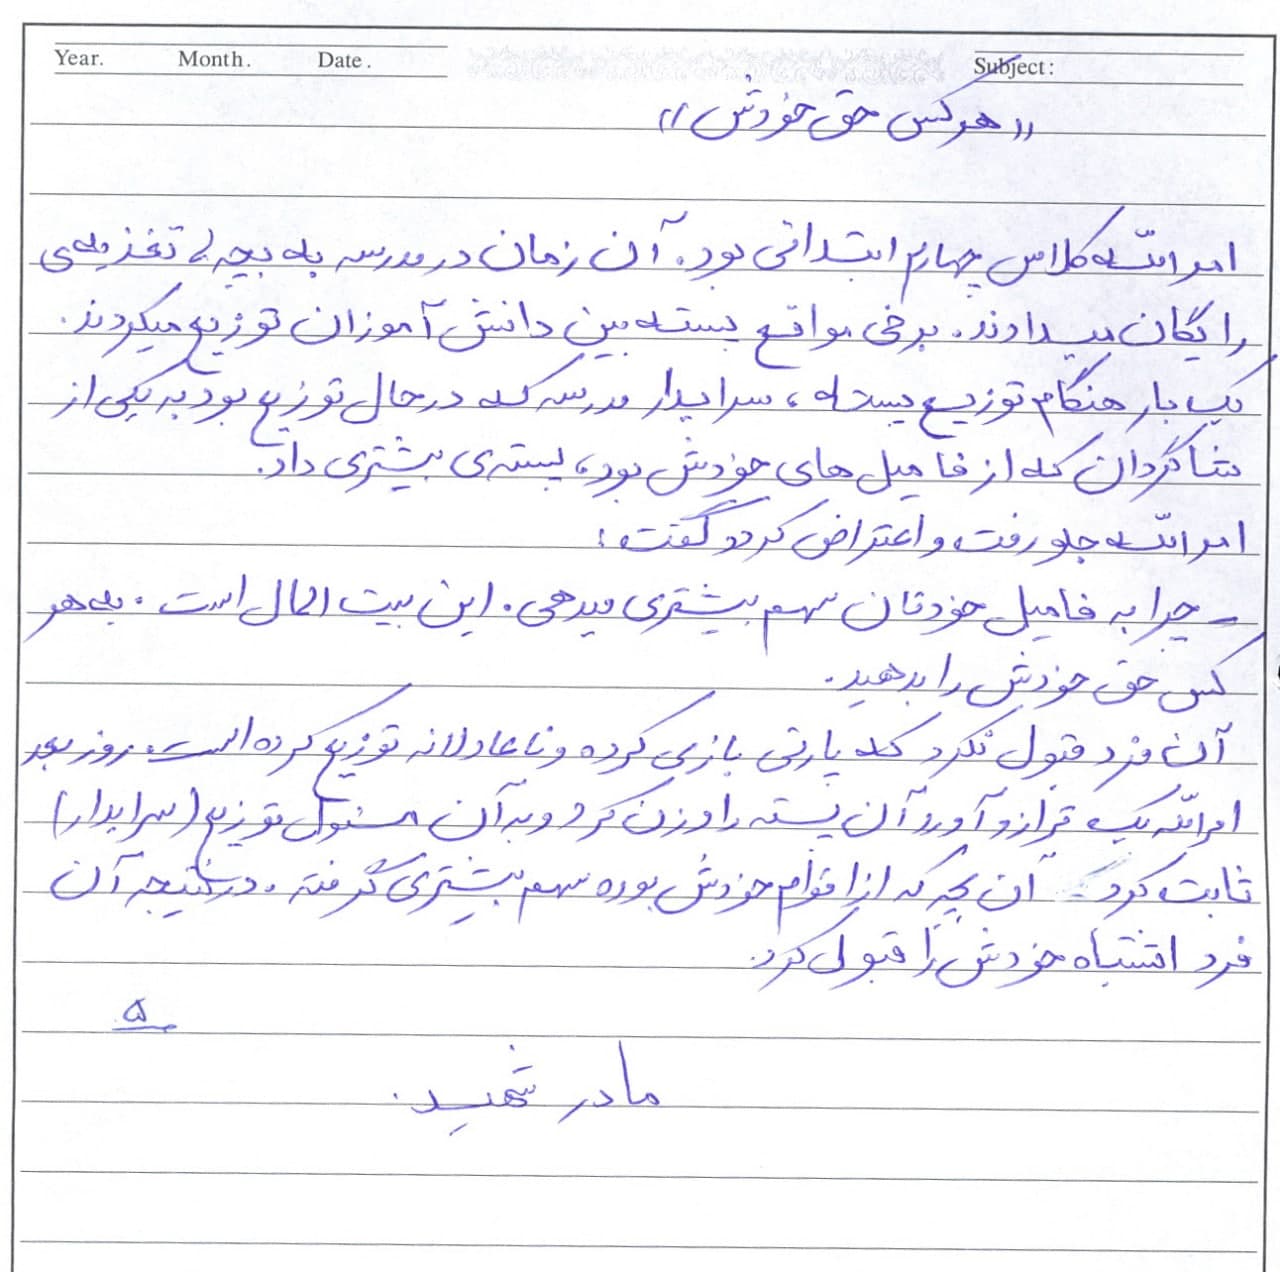 Year. Month. Date. Subject:
«هر کس حق خودش»
امرالله کلاس چهارم ابتدائی بود. آن زمان در مدرسه به بچه‌ها تغذیه‌ی
رایگان میدادند. برخی مواقع پسته بین دانش آموزان توزیع میکردند.
یک بار هنگام توزیع پسته، سرایدار مدرسه که در حال توزیع بود به یکی از
شاگردان که از فامیل های خودش بود، پسته‌ی بیشتری داد.
امرالله جلو رفت و اعتراض کرد و گفت:
- چرا به فامیل خودتان سهم بیشتری میدهی. این بیت المال است. به هر
کس حق خودش را بدهید.
آن فرد قبول نکرد که پارتی بازی کرده و ناعادلانه توزیع کرده است. روز بعد
امرالله یک ترازو آورد آن پسته را وزن کرد و به آن مسئول توزیع (سرایدار)
ثابت کرد آن بچه که از اقوام خودش بوده سهم بیشتری گرفته. در نتیجه آن
فرد اشتباه خودش را قبول کرد.
۵
مادر شهید.